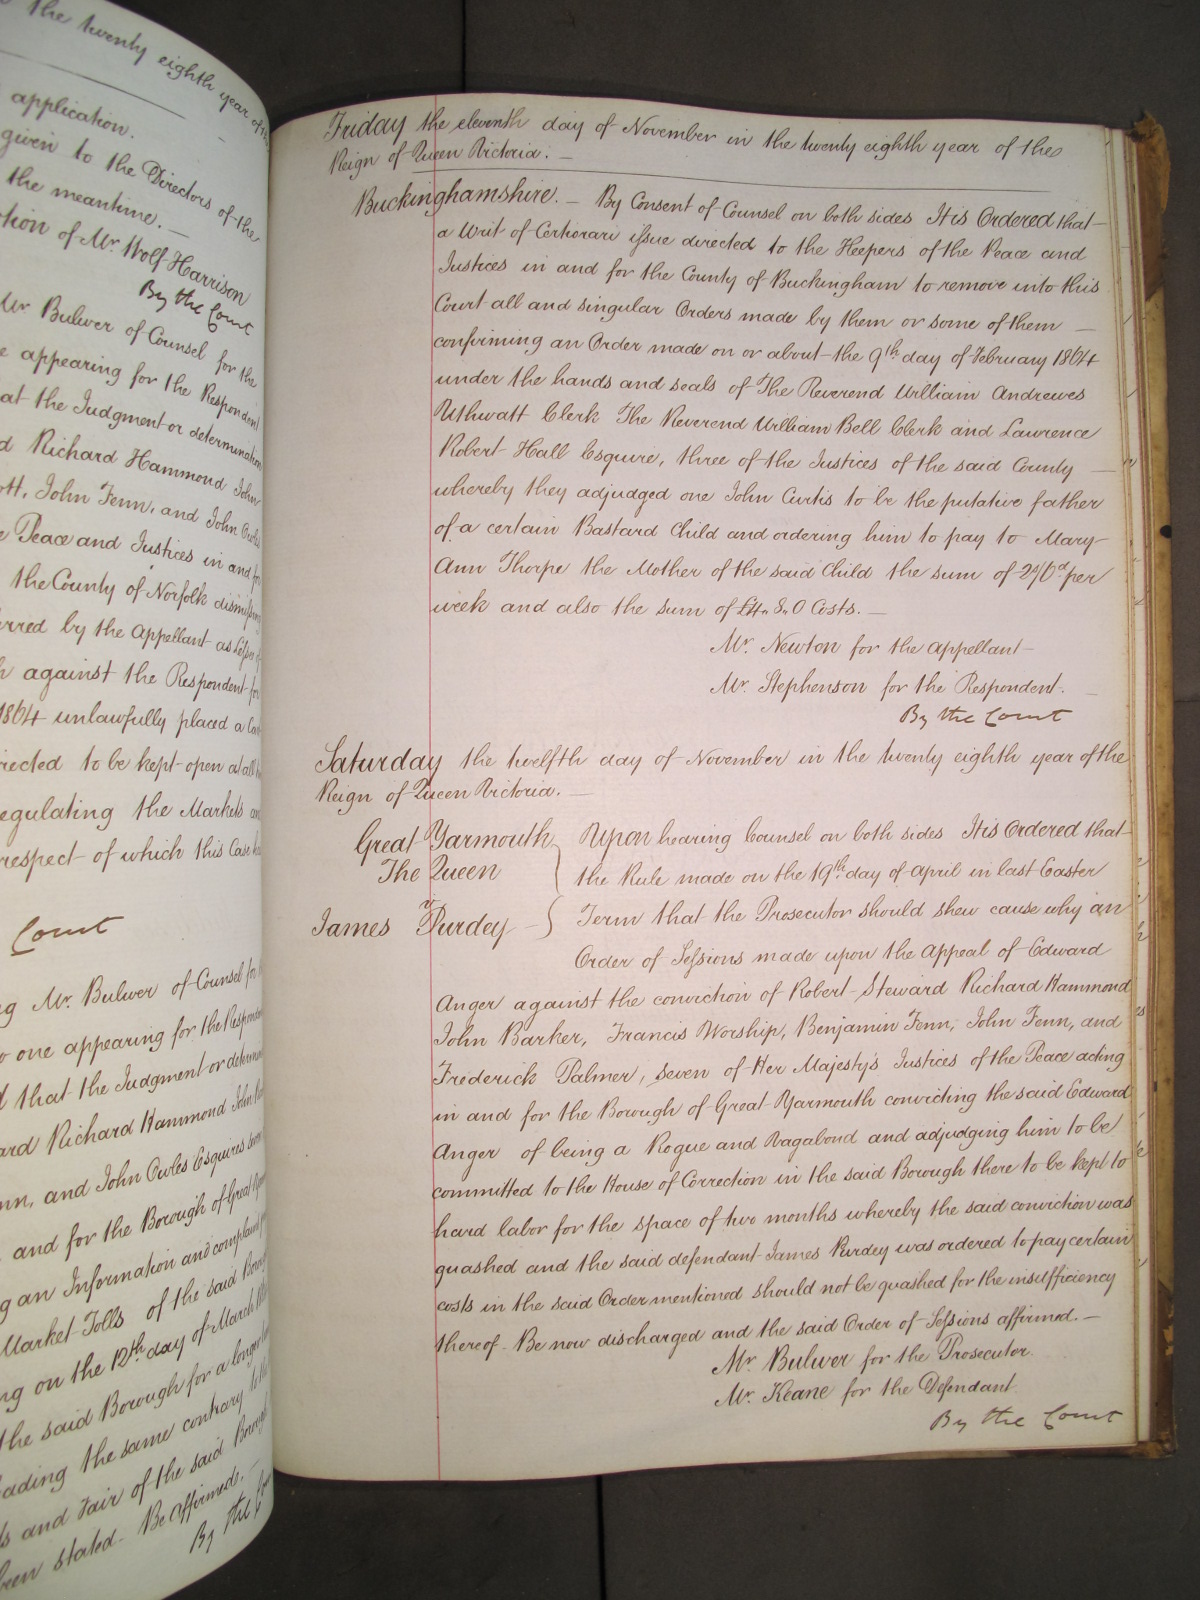 the twenty eighth year of the
application.
given to the Directors of the
the meantime. —
of Mr Wolf Harrison
By the Court
Mr Bulwer of Counsel for the
appearing for the Respondent
at the Judgment or determination
Richard Hammond John
John Fenn, and John Owles
Peace and Justices in and for
the County of Norfolk dismissing
by the Appellant as
against the Respondent for
1864 unlawfully placed a
to be kept open at all
regulating the Markets
respect of which this Case
Court
Mr. Bulwer of Counsel for
one appearing for the Respondent
that the Judgment or
Richard Hammond John
and John Owles Esquires
and for the Borough of Great
an Information and complaint
Market Tolls of the said
on the 12th day of March
the said Borough for a longer
the same contrary to the
and Fair of the said Borough
been stated. Be Affirmed. —
By the Court
Friday the eleventh day of November in the twenty eighth year of the
Reign of Queen Victoria. —
Buckinghamshire. — By Consent of Counsel on both sides It is Ordered that
a Writ of Certiorari issue directed to the Keepers of the Peace and
Justices in and for the County of Buckingham to remove into this
Court all and singular Orders made by them or some of them —
confirming an Order made on or about the 9th day of February 1864
under the hands and seals of The Reverend William Andrewes
Uthwatt Clerk The Reverend William Bell Clerk and Lawrence
Robert Hall Esquire, three of the Justices of the said County —
whereby they adjudged one John Curtis to be the putative father
of a certain Bastard Child and ordering him to pay to Mary
Ann Thorpe the Mother of the said Child the sum of 2/6d per
week and also the sum of £4. 8. 0 Costs. —
Mr. Newton for the Appellant
Mr. Stephenson for the Respondent. —
By the Court
Saturday the twelfth day of November in the twenty eighth year of the
Reign of Queen Victoria. —
Great Yarmouth Upon hearing Counsel on both sides It is Ordered that
The Queen the Rule made on the 19th day of April in last Easter
v
James Purdey Term that the Prosecutor should shew cause why an
Order of Sessions made upon the Appeal of Edward
Anger against the conviction of Robert Steward Richard Hammond
John Barker, Francis Worship, Benjamin Fenn, John Fenn, and
Frederick Palmer, seven of Her Majesty's Justices of the Peace acting
in and for the Borough of Great Yarmouth convicting the said Edward
Anger of being a Rogue and Vagabond and adjudging him to be
committed to the House of Correction in the said Borough there to be kept to
hard labor for the space of two months whereby the said conviction was
quashed and the said defendant James Purdey was ordered to pay certain
costs in the said Order mentioned should not be quashed for the insufficiency
thereof. Be now discharged and the said Order of Sessions affirmed. —
Mr. Bulwer for the Prosecutor.
Mr. Keane for the Defendant.
By the Court